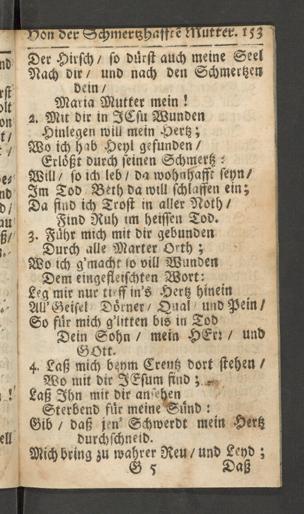 Von der Schmertzhaffte Mutter. 153
Der Hirsch / so dürst auch meine Seel
Nach dir / und nach den Schmertzen
dein /
Maria Mutter mein !
2. Mit dir in JEsu Wunden
Hinlegen will mein Hertz ;
Wo ich hab Heyl gefunden /
Erlößt durch seinen Schmertz :
Will / so ich leb / da wohnhafft seyn /
Im Tod-Beth da will schlaffen ein ;
Da find ich Trost in aller Noth /
Find Ruh im heissen Tod.
3. Führ mich mit dir gebunden
Durch alle Marter Orth ;
Wo ich g'macht so vill Wunden
Dem eingefleischten Wort:
Leg mir nur tieff in's Hertz hinein
All' Geisel / Dörner / Qual / und Pein /
So für mich g'litten bis in Tod
Dein Sohn / mein HErr / und
GOtt.
4. Laß mich beym Creutz dort stehen /
Wo mit dir JEsum find ;
Laß Ihn mit dir ansehen
Sterbend für meine Sünd :
Gib / daß jen' Schwerdt mein Hertz
durchschneid.
Mich bring zu wahrer Reu / und Leyd ;
G 5 Daß